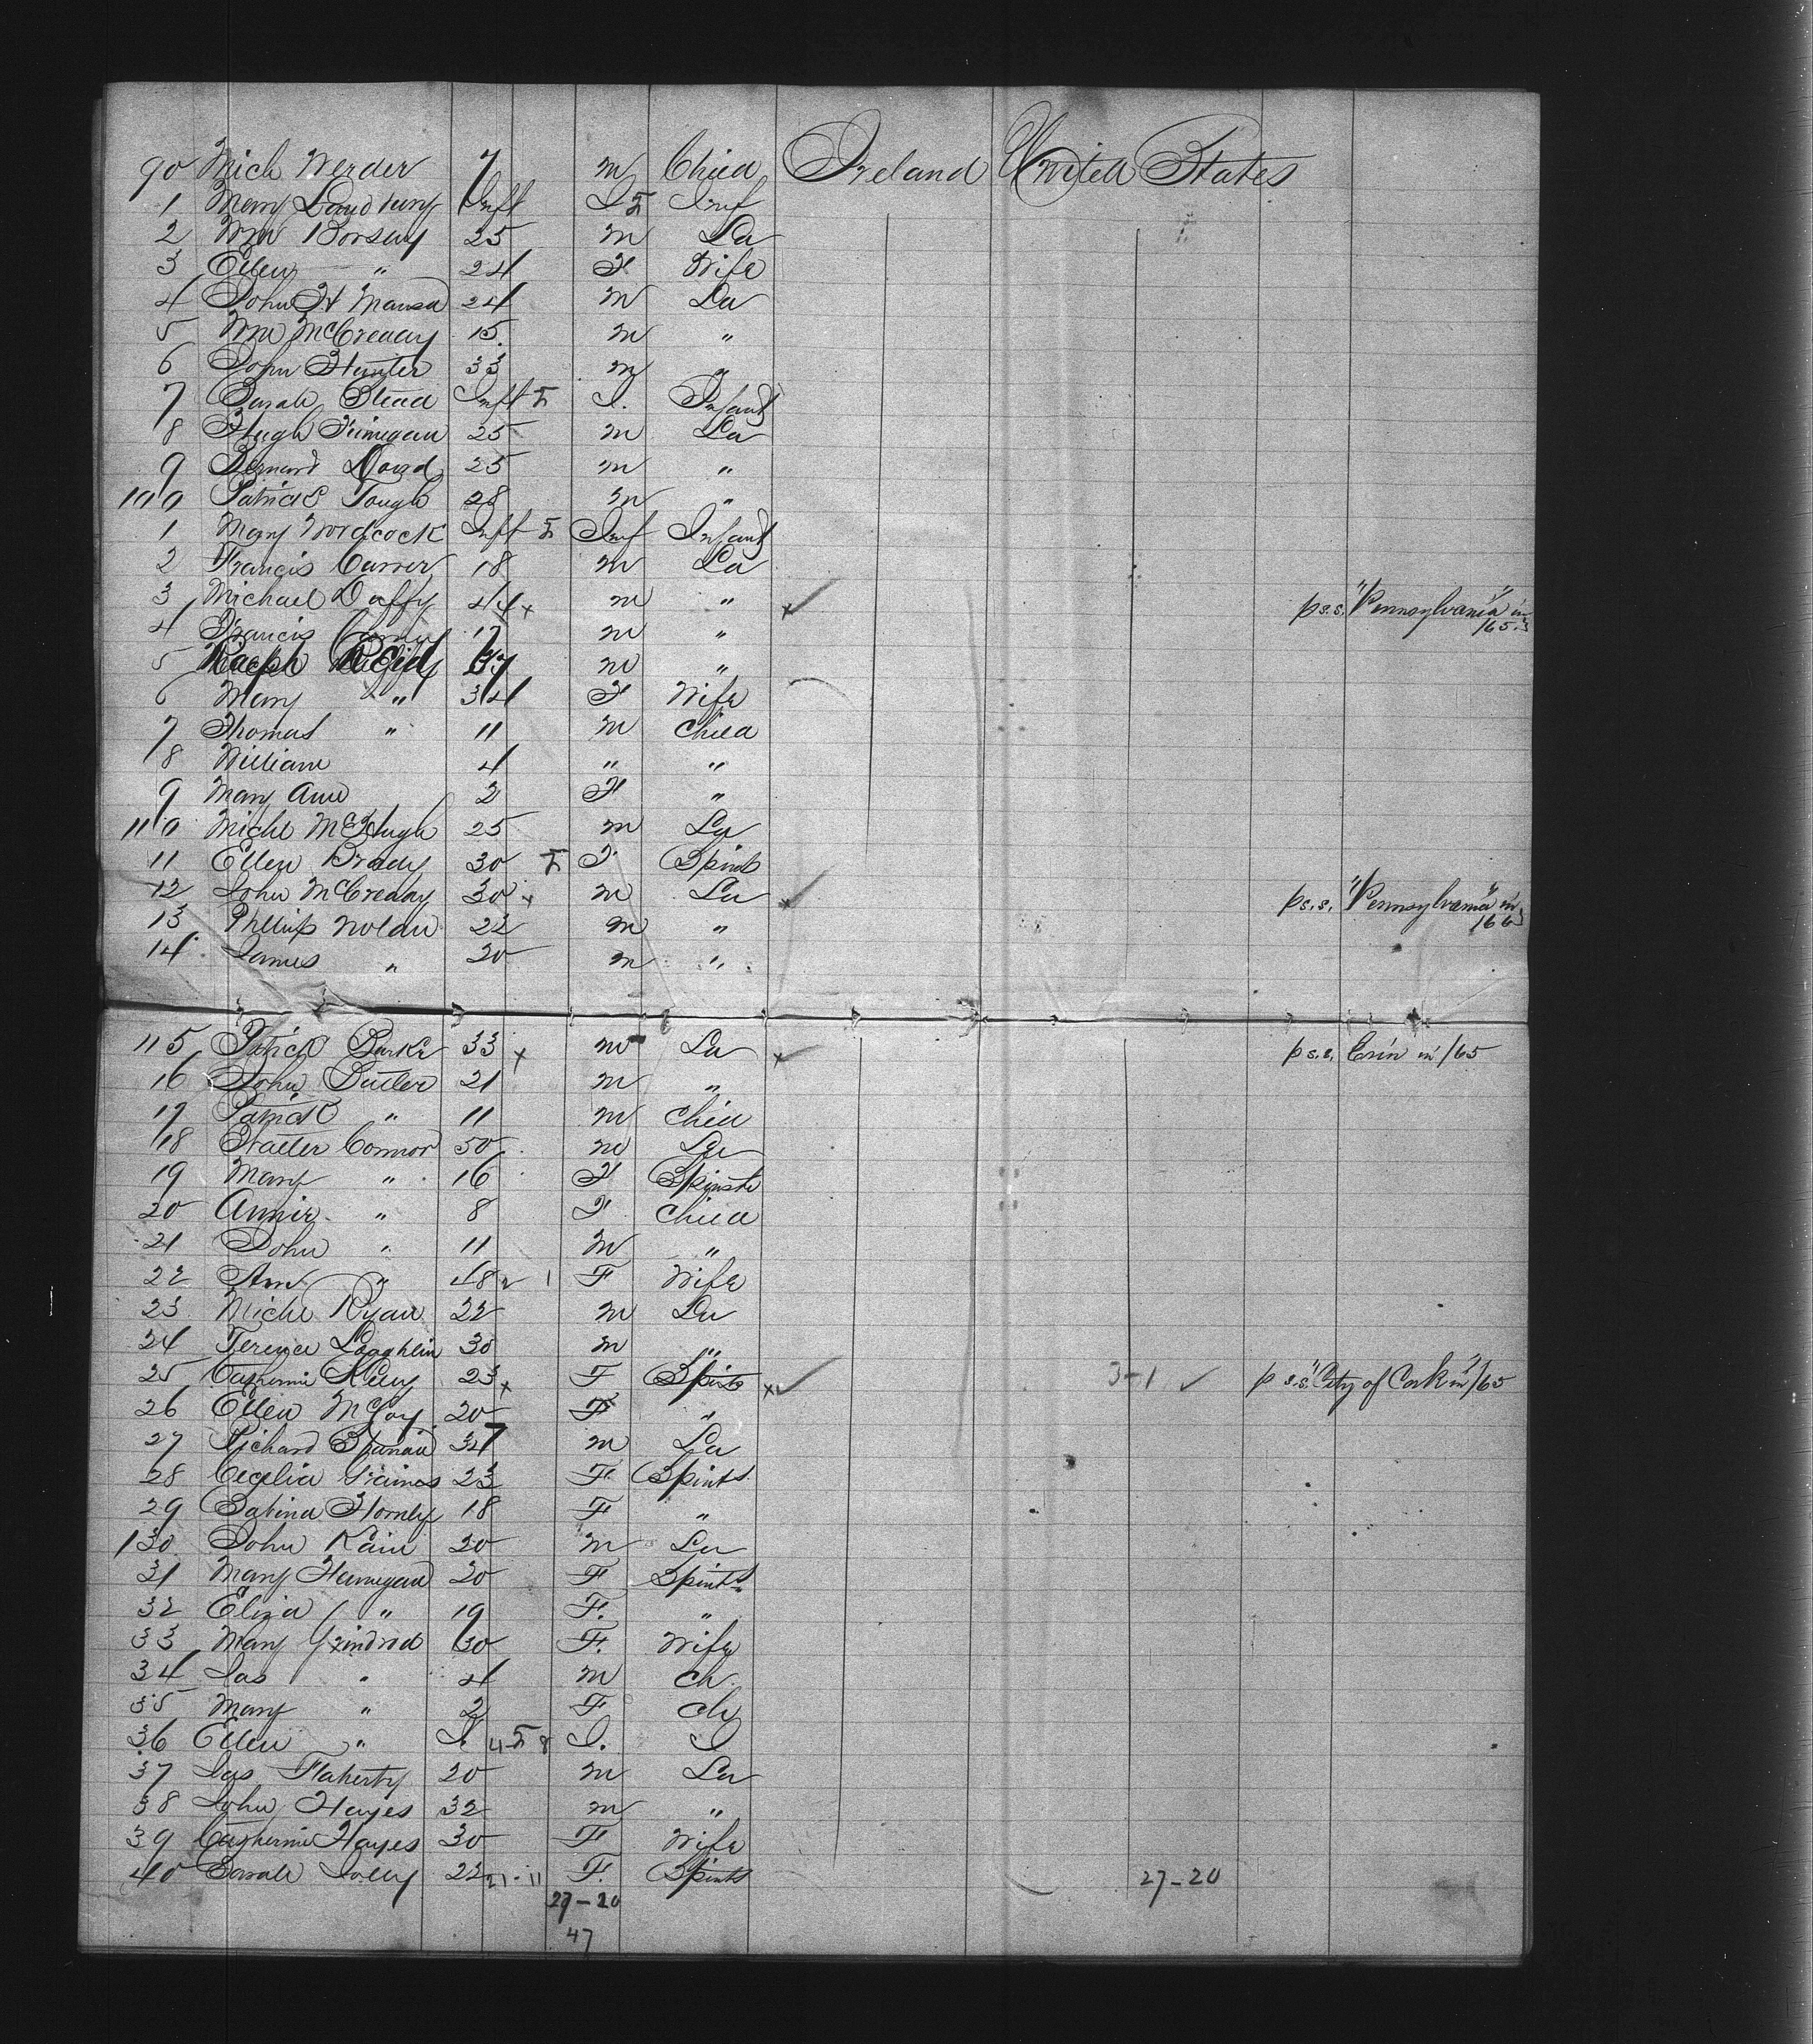 90 Mich Werder 7 m Child Ireland United States
1 Mary Inft I Inf
2 Wm 25 m La
3 Ellen " 24 F Wife
4 John H 24 m La
5 Wm McCready 15 m "
6 John Hunter 33 m "
7 Sarah Inft I. Infant
8 Hugh Finnegan 25 m La
9 Bernard 25 m "
100 Patrick Tough 28 m "
1 Mary Woodcock Inft Inf Infant
2 Francis 18 m La
3 Michael Duffy 44 x m " x ✓ p s.s. "Pennsylvania" in
165.
4 Francis 17 m "
5 Ralph Reid m "
6 Mary " 34 F Wife
7 Thomas " 11 m Child
8 William 4 " "
9 Mary Ann 2 F "
110 Michl McHugh 25 m La
11 Ellen Brady 30 F Spinst
12 John McCready 30 x m La x ✓ p s.s. "Pennsylvania" in
166
13 Phillip Nolan 22 m "
14 James " 20 m "
115 Patrick Burke 33 x m La x ✓ p s.s. Erin in 165
16 John Butler 21 m "
17 Patrick " 11 m Child
18 Connor 50 m La
19 Mary " 16 F Spinste
20 Annie " 8 F Child
21 John " 11 m "
22 Ann " 48 2 1 F Wife
23 Michl Ryan 22 m La
24 Terence Loughlin 30 m "
25 Catherine Kelly 23 x F Spinst x ✓ 3-1 ✓ p s.s. "City of Cork" in 165
26 Ellen McCoy 20 F "
27 Richard m La
28 Cecelia 23 F Spinst
29 Sabina 18 F "
130 John Kain 20 m La
31 Mary 20 F Spinst
32 Eliza " 19 F. "
33 Mary Grindrod 30 F. Wife
34 Jas " 4 m ch
35 Mary " 2 F ch
36 Ellen " I. 4 8 I. I
37 Jas Flaherty 20 m La
38 John Hayes 32 m "
39 Catherine Hayes 30 F Wife
40 Sarah Jolly 22 21-11 F. Spinst 27-20
27-20
47